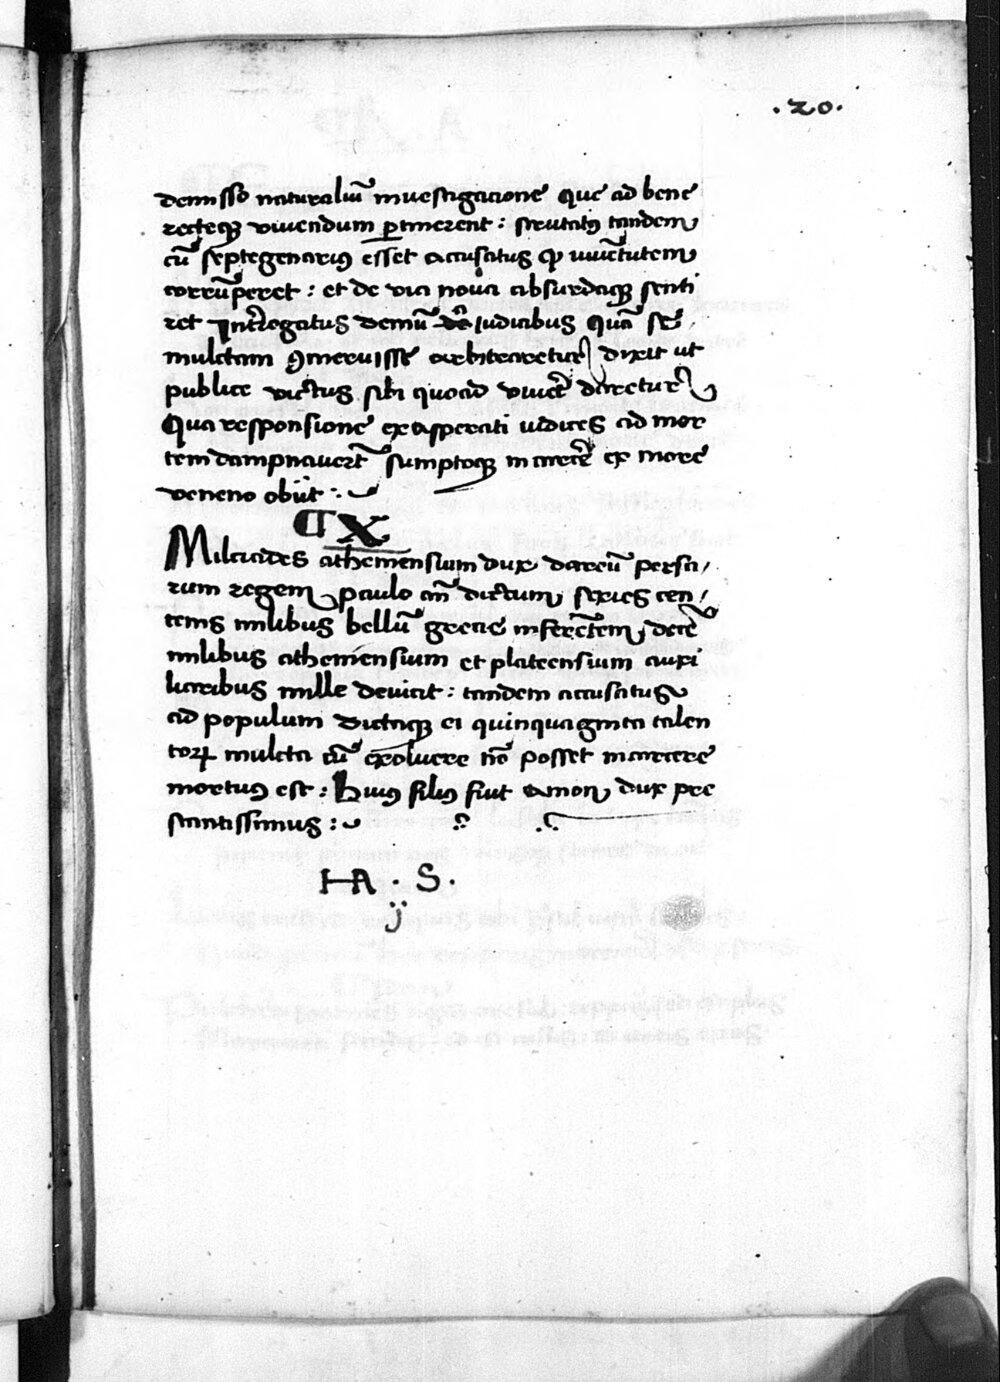 .20.
demisso naturaliū inuestigacione que ad bene
recteqꝫ viuendum ꝑtinerent : scrutatꝰ tandem
cū septegenariꝰ esset accusatus ꝙ iuuētutem
corrūperet : et de via noua absurdaqꝫ senti
ret Intērogatus demū a iudicibus quā se
mulctam ꝯmeruisse arbitraretur dixit ut
publice victus sibi quoad viuēt daretur
Qua responsione exasperati iudices ad mor
tem dampnauerūt sumptoqꝫ in carcēe ex more
veneno obiit :
¶ X
Milciades atheniensium dux dareū persa/
rum regem paulo an̄ dictum sexies cen/
tenis milibus bellū grecie inferētem decē
milibus atheniensium et plateensium auxi
liaribus mille deuicit : tandem accusatus
ad populum dictaqꝫ ei quinquaginta talen
toꝝ mulcta cū exoluere nō posset in carcere
mortuꝰ est : Huiꝰ filiꝰ fuit cimon dux pre
stantissimus :
HA . S .
ij